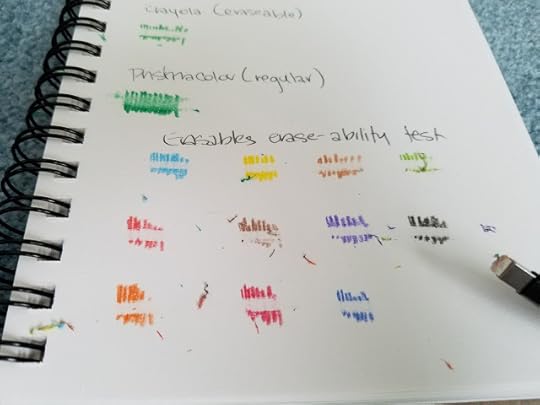 Crayola (eraseable)
Prismacolor (regular)
Erasables erase-ability test